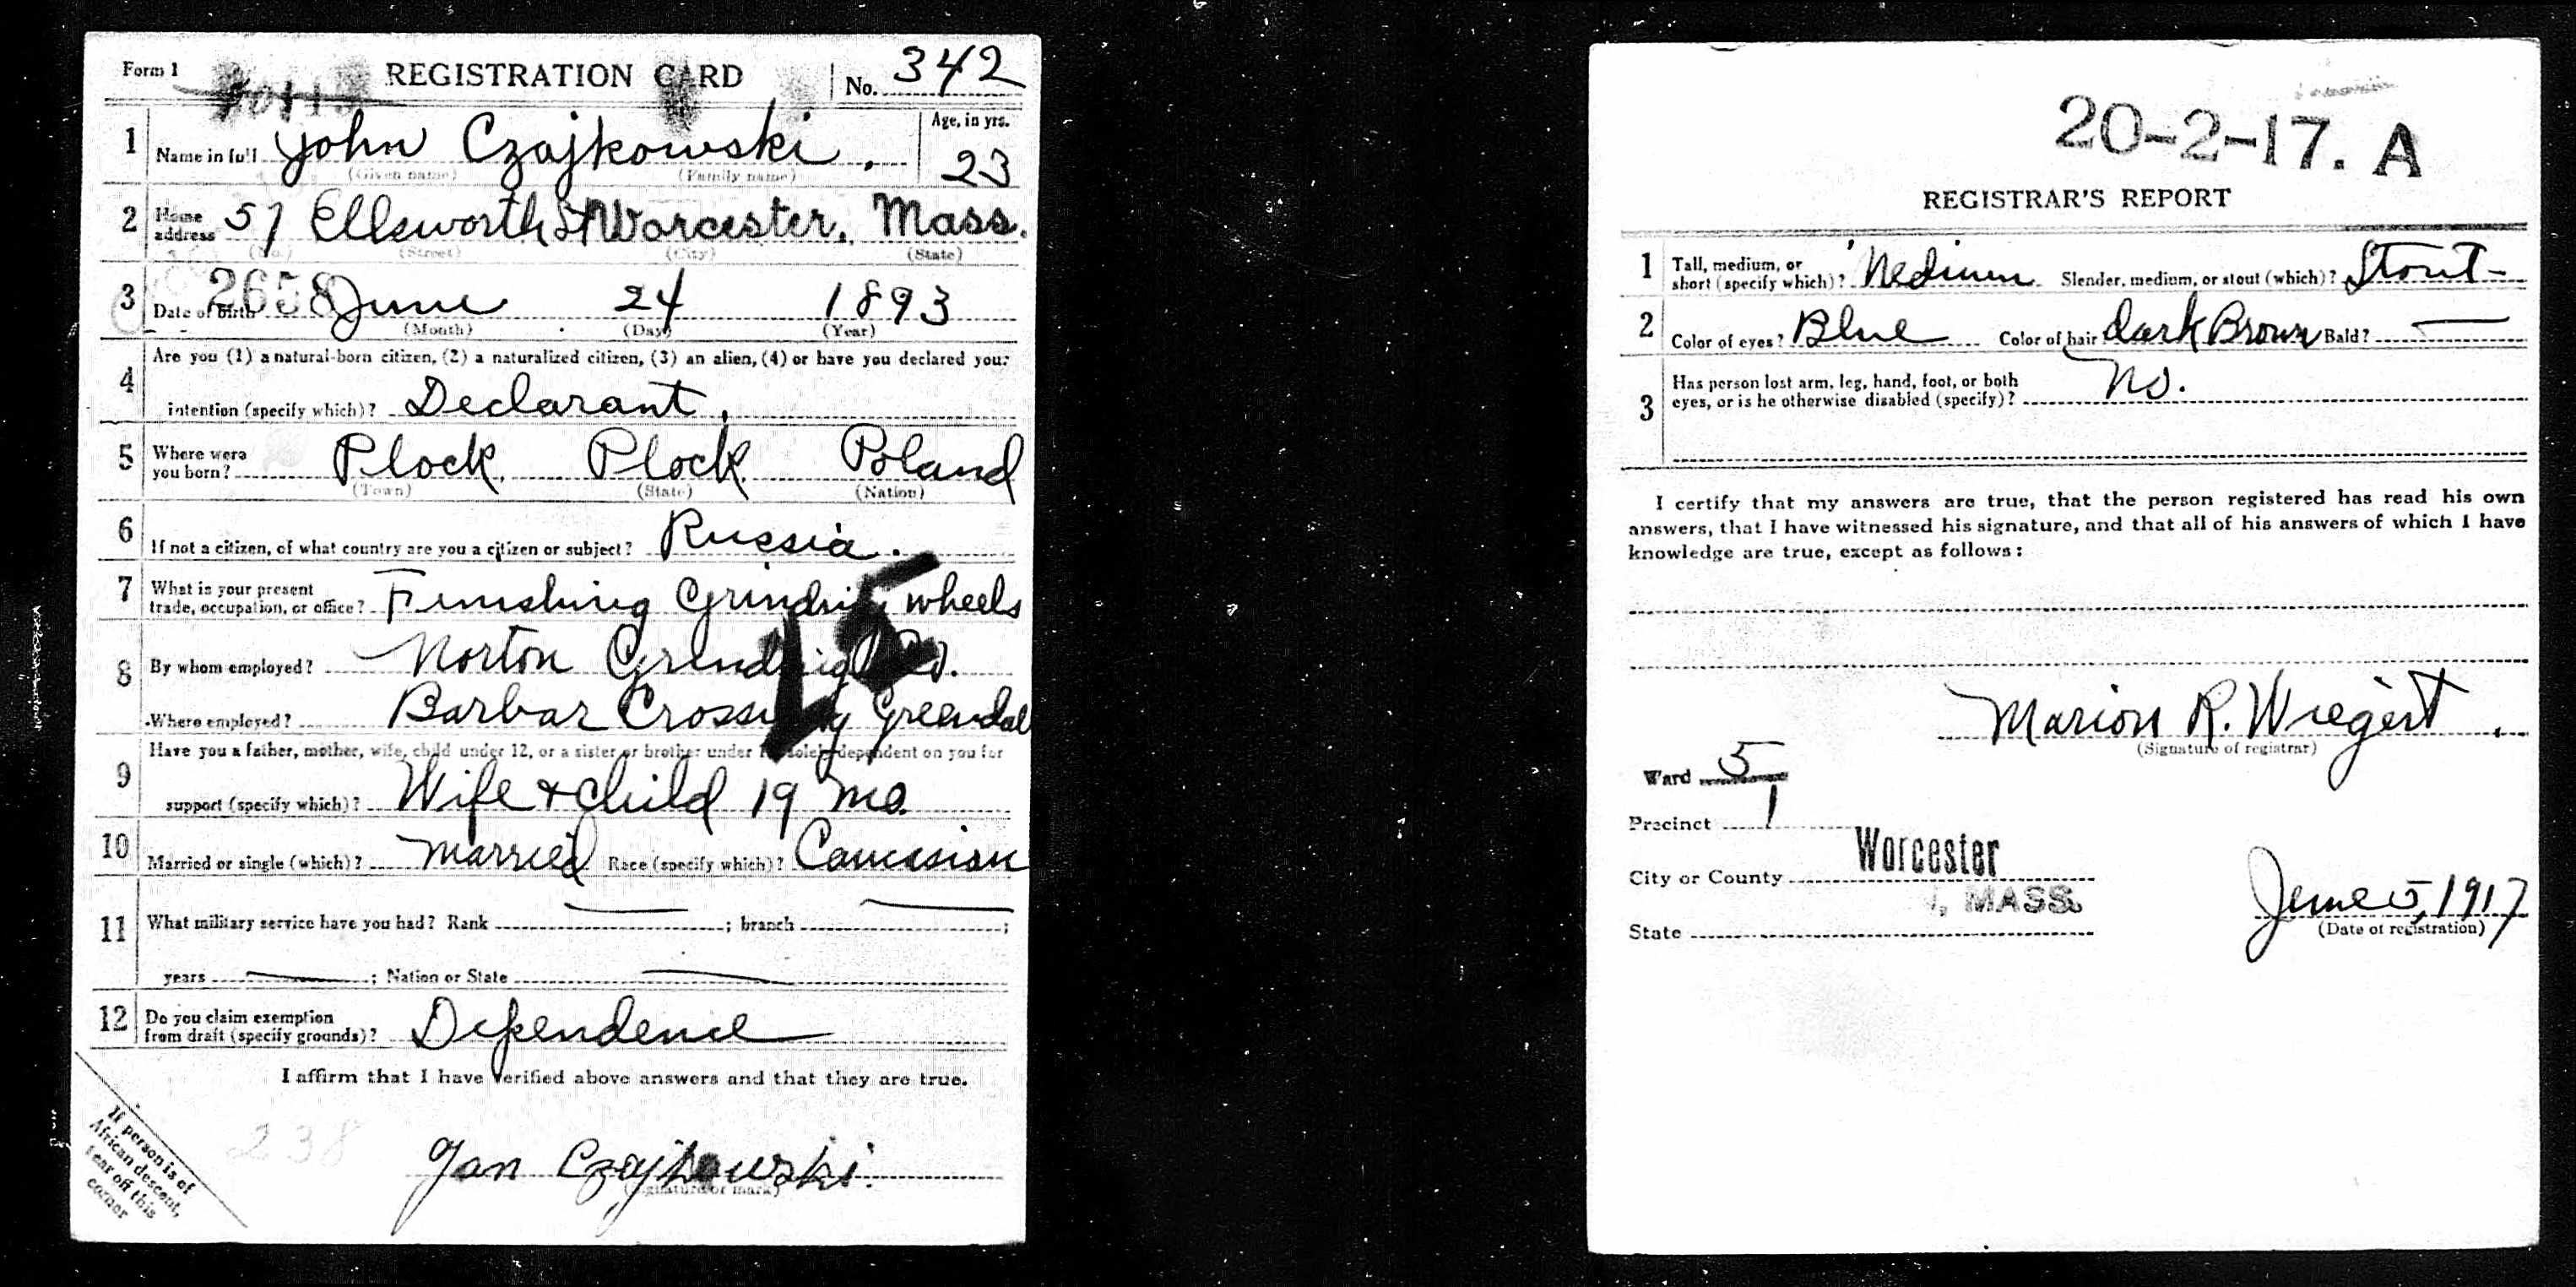 Form 1
REGISTRATION CARD
No. 342
1 Name in full John Czajkowski. Age, in yrs. 23
(Given name) (Family name)
2 Home address 57 Ellsworth St Worcester, Mass.
(No.) (Street) (City) (State)
2658
3 Date of birth June 24 1893
(Month) (Day) (Year)
4 Are you (1) a natural-born citizen, (2) a naturalized citizen, (3) an alien, (4) or have you declared your
intention (specify which)? Declarant.
5 Where were you born? Plock. Plock. Poland
(Town) (State) (Nation)
6 If not a citizen, of what country are you a citizen or subject? Russia.
7 What is your present
trade, occupation, or office? Finishing Grinding wheels
8 By whom employed? Norton Grinding Co.
Where employed? Barbar Crossing Greendal
9 Have you a father, mother, wife, child under 12, or a sister or brother under 12, solely dependent on you for
support (specify which)? Wife + child 19 mo.
10 Married or single (which)? Married Race (specify which)? Caucasian
11 What military service have you had? Rank — ; branch — ;
years — ; Nation or State —
12 Do you claim exemption
from draft (specify grounds)? Dependence
I affirm that I have verified above answers and that they are true.
238
Jan Czajkowski.
(Signature or mark)
If person is of
African descent,
tear off this
corner
20-2-17. A
REGISTRAR'S REPORT
1 Tall, medium, or
short (specify which)? Medium Slender, medium, or stout (which)? Stout
2 Color of eyes? Blue Color of hair dark Brown Bald? —
3 Has person lost arm, leg, hand, foot, or both
eyes, or is he otherwise disabled (specify)? No.
I certify that my answers are true, that the person registered has read his own
answers, that I have witnessed his signature, and that all of his answers of which I have
knowledge are true, except as follows:
Marion R. Wiegert.
(Signature of registrar)
Ward 5
Precinct 1
City or County Worcester
State MASS.
June 5, 1917
(Date of registration)